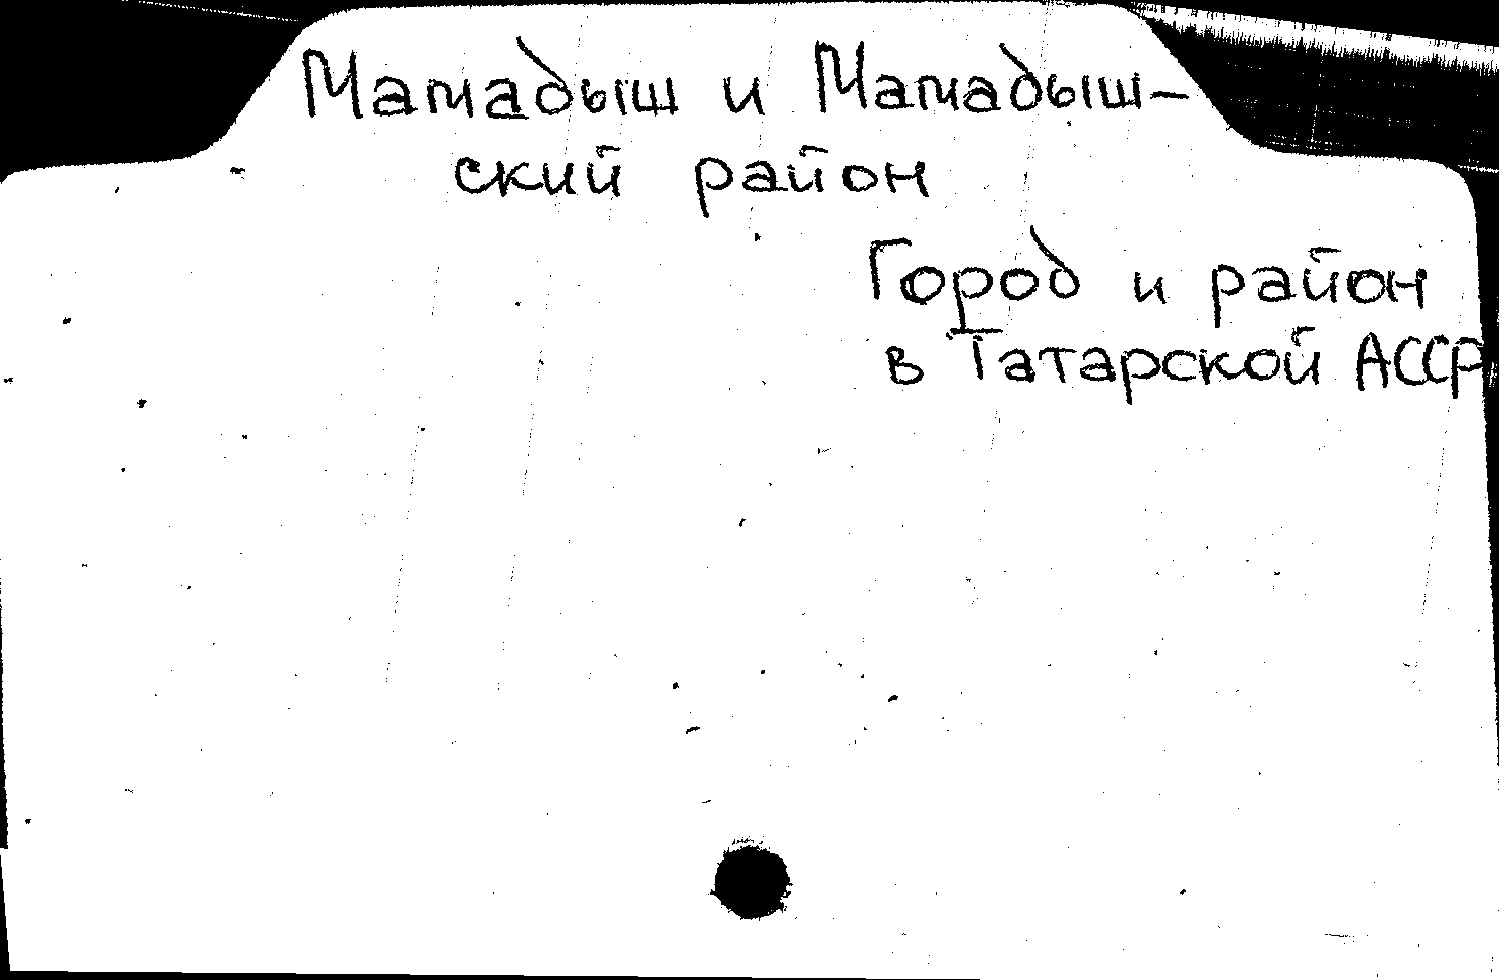 Мамадыш и Мамадыш-
ский район
Город и район
в Татарской АССР